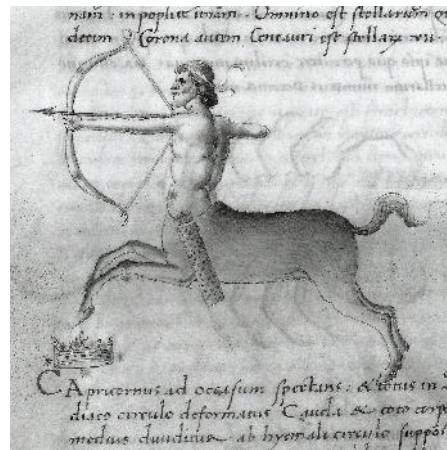 nam: in poplite unam. Omnino est stellarum
decem Corona autem Centauri est stellarum vii.
CApricornus ad occasum spectans: & totus in
diaco circulo deformatus Cauda & toto corp
medius diuiditur ab hyemali circulo suppo